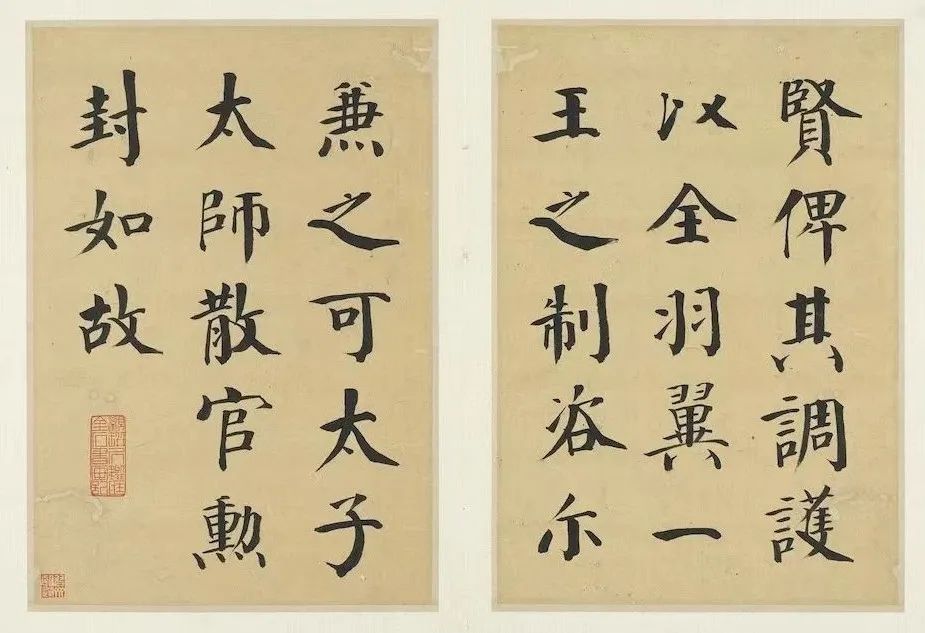 賢俾其調護
以全羽翼一
王之制咨尔
兼之可太子
太師散官勳
封如故